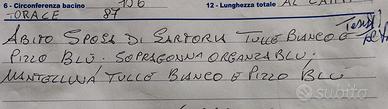 106
6 - Circonferenza bacino 12 - Lunghezza totale AL
TORACE 87
ABITO SPOSA DI SARTORIA TULLE BIANCO E
PIZZO BLU. SOPRAGONNA ORGANZA BLU.
MANTELLINA TULLE BIANCO E PIZZO BLU
subito